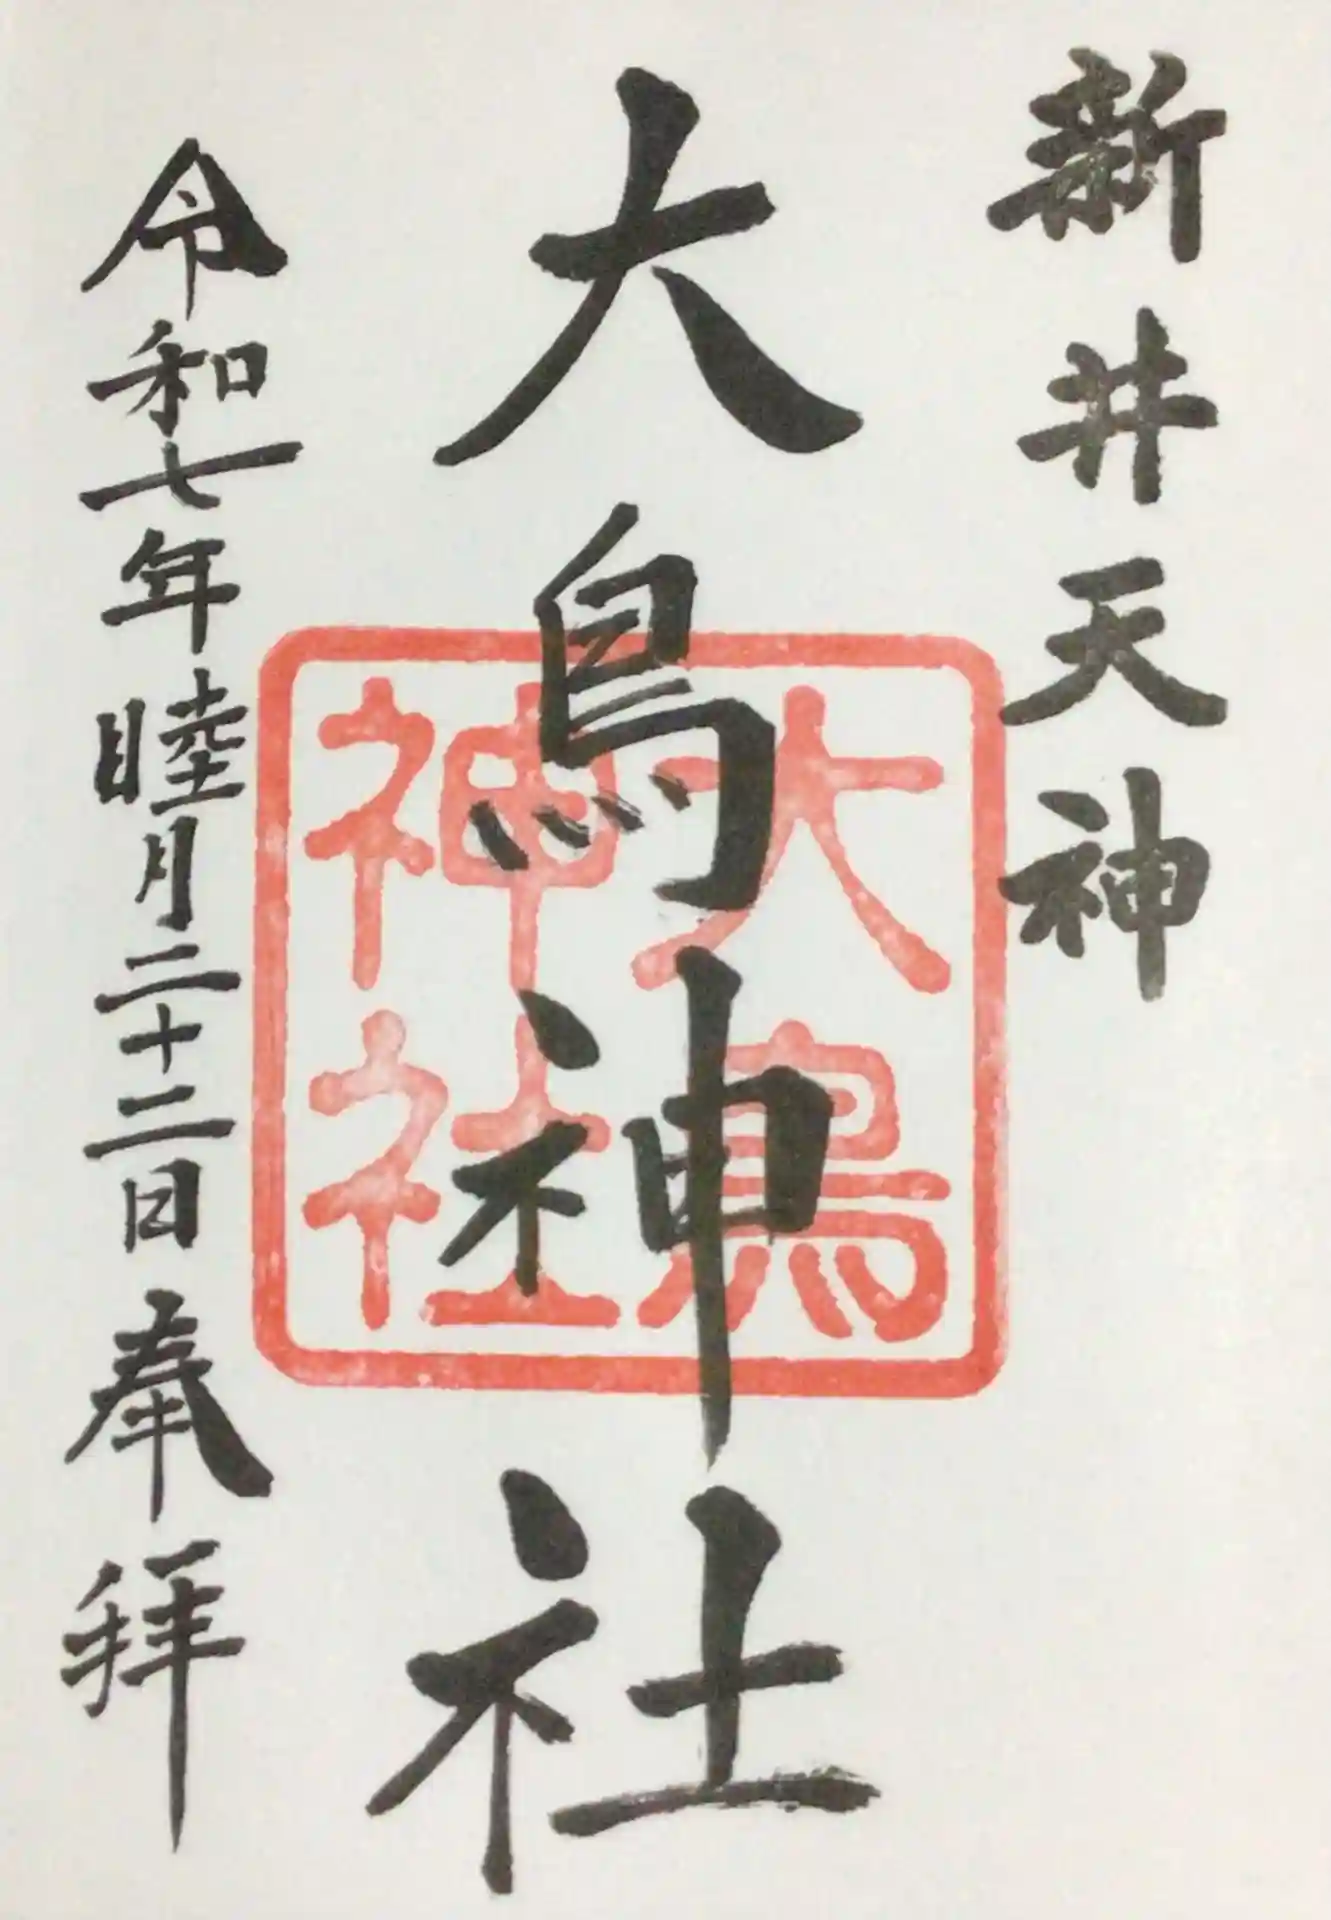 新井天神
大鳥神社
大鳥
神社
令和七年睦月二十二日奉拝